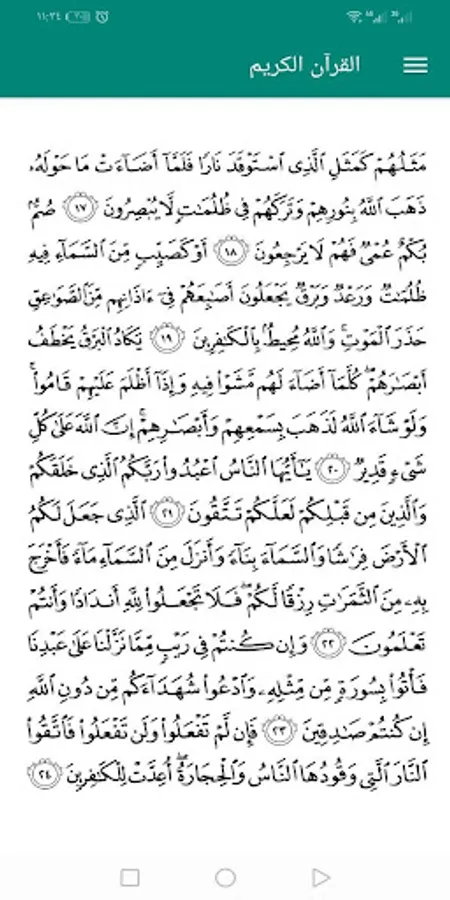 ١١:٣٤
القرآن الكريم
مَثَلُهُمْ كَمَثَلِ ٱلَّذِى ٱسْتَوْقَدَ نَارًا فَلَمَّآ أَضَآءَتْ مَا حَوْلَهُۥ
ذَهَبَ ٱللَّهُ بِنُورِهِمْ وَتَرَكَهُمْ فِى ظُلُمَٰتٍ لَّا يُبْصِرُونَ ١٧ صُمٌّۢ
بُكْمٌ عُمْىٌ فَهُمْ لَا يَرْجِعُونَ ١٨ أَوْ كَصَيِّبٍ مِّنَ ٱلسَّمَآءِ فِيهِ
ظُلُمَٰتٌ وَرَعْدٌ وَبَرْقٌ يَجْعَلُونَ أَصَٰبِعَهُمْ فِىٓ ءَاذَانِهِم مِّنَ ٱلصَّوَٰعِقِ
حَذَرَ ٱلْمَوْتِ ۚ وَٱللَّهُ مُحِيطٌۢ بِٱلْكَٰفِرِينَ ١٩ يَكَادُ ٱلْبَرْقُ يَخْطَفُ
أَبْصَٰرَهُمْ ۖ كُلَّمَآ أَضَآءَ لَهُم مَّشَوْا۟ فِيهِ وَإِذَآ أَظْلَمَ عَلَيْهِمْ قَامُوا۟ ۚ
وَلَوْ شَآءَ ٱللَّهُ لَذَهَبَ بِسَمْعِهِمْ وَأَبْصَٰرِهِمْ ۚ إِنَّ ٱللَّهَ عَلَىٰ كُلِّ
شَىْءٍ قَدِيرٌ ٢٠ يَٰٓأَيُّهَا ٱلنَّاسُ ٱعْبُدُوا۟ رَبَّكُمُ ٱلَّذِى خَلَقَكُمْ
وَٱلَّذِينَ مِن قَبْلِكُمْ لَعَلَّكُمْ تَتَّقُونَ ٢١ ٱلَّذِى جَعَلَ لَكُمُ
ٱلْأَرْضَ فِرَٰشًا وَٱلسَّمَآءَ بِنَآءً وَأَنزَلَ مِنَ ٱلسَّمَآءِ مَآءً فَأَخْرَجَ
بِهِۦ مِنَ ٱلثَّمَرَٰتِ رِزْقًا لَّكُمْ ۖ فَلَا تَجْعَلُوا۟ لِلَّهِ أَندَادًا وَأَنتُمْ
تَعْلَمُونَ ٢٢ وَإِن كُنتُمْ فِى رَيْبٍ مِّمَّا نَزَّلْنَا عَلَىٰ عَبْدِنَا
فَأْتُوا۟ بِسُورَةٍ مِّن مِّثْلِهِۦ وَٱدْعُوا۟ شُهَدَآءَكُم مِّن دُونِ ٱللَّهِ
إِن كُنتُمْ صَٰدِقِينَ ٢٣ فَإِن لَّمْ تَفْعَلُوا۟ وَلَن تَفْعَلُوا۟ فَٱتَّقُوا۟
ٱلنَّارَ ٱلَّتِى وَقُودُهَا ٱلنَّاسُ وَٱلْحِجَارَةُ ۖ أُعِدَّتْ لِلْكَٰفِرِينَ ٢٤